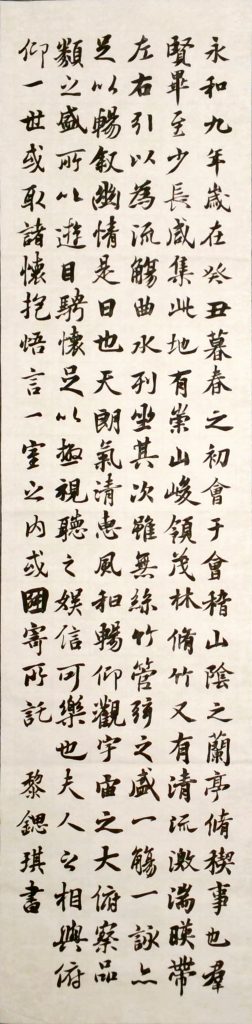 永和九年歲在癸丑暮春之初會于會稽山陰之蘭亭脩稧事也羣
賢畢至少長咸集此地有崇山峻領茂林脩竹又有清流激湍暎帶
左右引以為流觴曲水列坐其次雖無絲竹管弦之盛一觴一詠亦
足以暢叙幽情是日也天朗氣清惠風和暢仰觀宇宙之大俯察品
類之盛所以遊目騁懷足以極視聽之娛信可樂也夫人之相與俯
仰一世或取諸懷抱悟言一室之內或因寄所託 黎鍶琪書